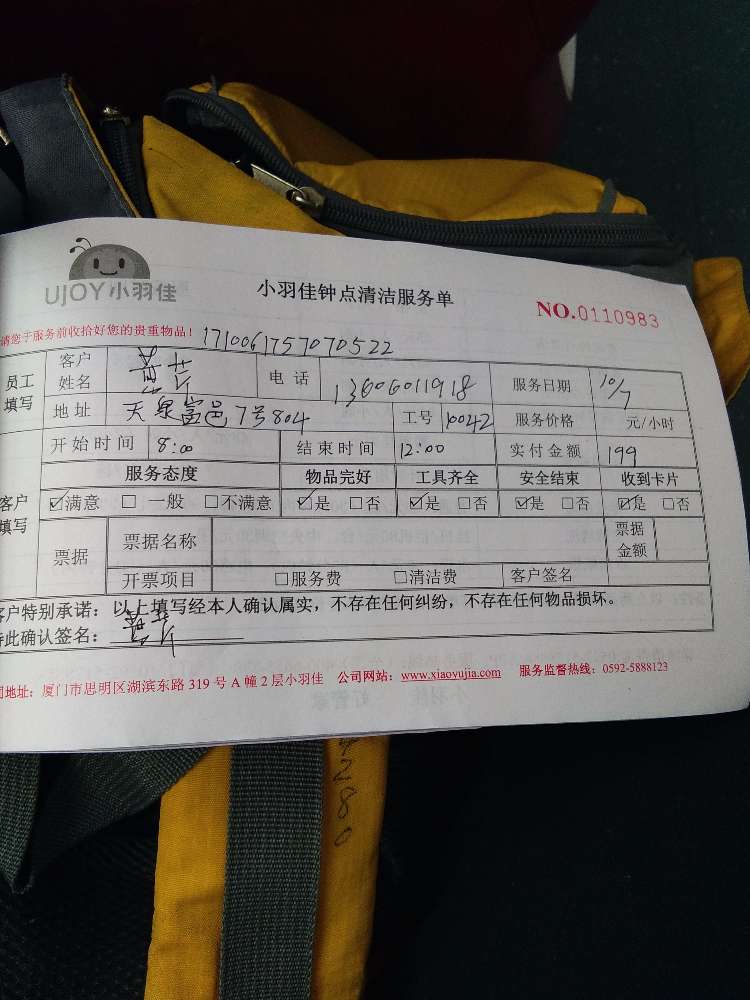 UJOY小羽佳
小羽佳钟点清洁服务单
NO.0110983
请您于服务前收拾好您的贵重物品！ 1710061757070522
员工填写 客户姓名 电话 13606011918 服务日期 10/7
地址 天泉富邑7号804 工号 10042 服务价格 元/小时
开始时间 8:00 结束时间 12:00 实付金额 199
服务态度 物品完好 工具齐全 安全结束 收到卡片
客户填写 ☑满意 □一般 □不满意 ☑是 □否 ☑是 □否 ☑是 □否 ☑是 □否
票据 票据名称 票据金额
开票项目 □服务费 □清洁费 客户签名
客户特别承诺：以上填写经本人确认属实，不存在任何纠纷，不存在任何物品损坏。
特此确认签名：
司地址：厦门市思明区湖滨东路 319 号 A 幢 2 层小羽佳 公司网站：www.xiaoyujia.com 服务监督热线：0592-5888123
4280